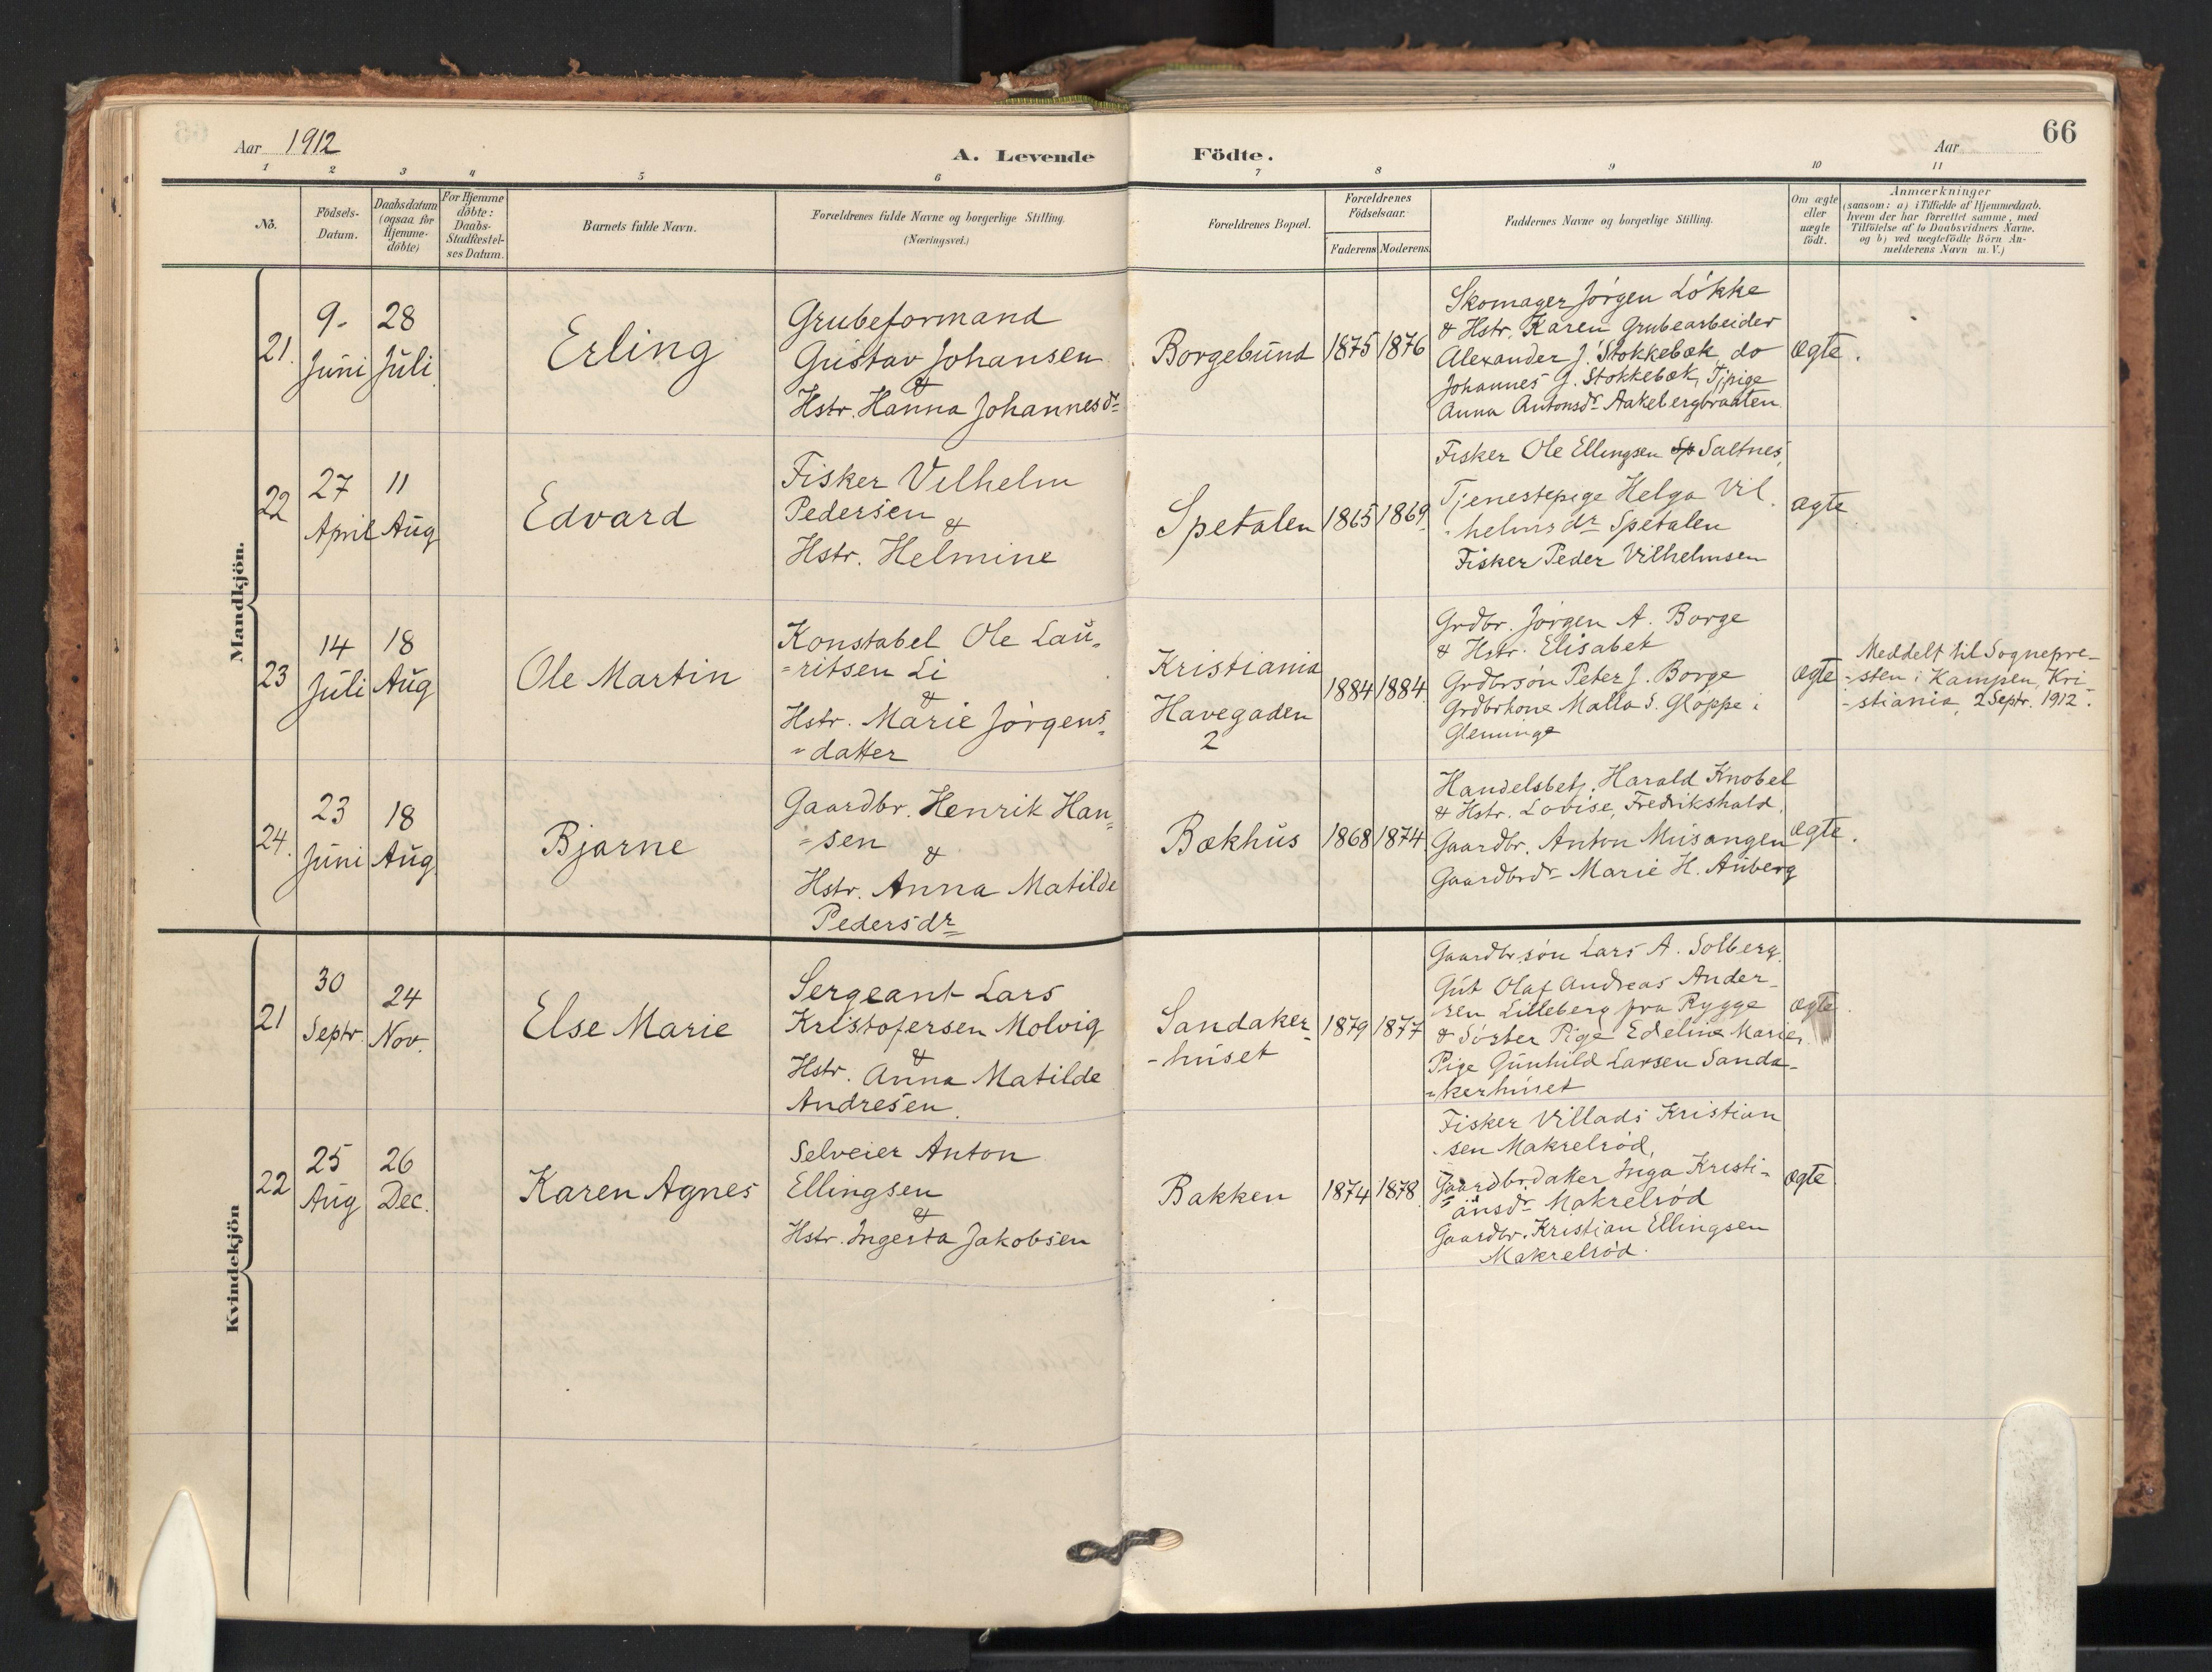 Aar 1912
A. Levende Födte.
Aar
66
1 2 3 4 5 6 7 8 9 10 11
No.
Födsels-
Datum.
Daabsdatum
(ogsaa for
Hjemme-
döbte)
For Hjemme
döbte:
Daabs-
Stadfæstel-
ses Datum.
Barnets fulde Navn.
Forældrenes fulde Navne og borgerlige Stilling.
(Næringsvei.)
Forældrenes Bopæl.
Forældrenes
Födselsaar.
Faderens Moderens
Faddernes Navne og borgerlige Stilling.
Om ægte
eller
uægte
födt.
Anmærkninger
(saasom: a) i Tilfælde af Hjemmedaab.
hvem der har forrettet samme, med
Tilföielse af to Daabsvidners Navne.
og b) ved uægtefödte Börn An-
melderens Navn m.V.)
Mandkjön.
21.
9.
Juni
28
Juli
Erling
Grubeformand
Gustav Johansen
&
Hstr. Hanna Johannesdr
Borgebund
1875
1876
Skomager Jörgen Lökke
& Hstr. Karen Grubearbeider
Alexander J. Stokkebæk, do
Johannes J. Stokkebæk, Tjpige
Anna Antonsdr Aakebergbraaten
ægte.
22
27
April
11
Aug
Edvard
Fisker Vilhelm
Pedersen &
Hstr. Helmine
Spetalen
1865
1869
Fisker Ole Ellingsen Sp Saltnes,
Tjenestepige Helga Vil-
helmsdr Spetalen
Fisker Peder Vilhelmsen
ægte
23
14
Juli
18
Aug
Ole Martin
Konstabel Ole Lau=
=ritsen Li
&
Hstr. Marie Jörgens=
=datter
Kristiania
Havegaden
2
1884
1884
Grdbr. Jörgen A. Borge
& Hstr. Elisabet
Grdbrsön Peter J. Borge
Grdbrkone Malla S. Gloppe i
Glemminge
ægte
Meddelt til Sognepre-
-sten i Kampen, Kri-
-stiania, 2 Septr. 1912.
24.
23
Juni
18
Aug
Bjarne
Gaardbr. Henrik Han=
=sen &
Hstr. Anna Matilde
Pedersdr
Bækhus
1868
1874
Handelsbetj. Harald Knobel
& Hstr. Lovise, Fredrikshald.
Gaardbr. Anton Musangen
Gaardbrdr Marie H. Auberg
ægte.
Kvindekjön
21
30
Septr.
24
Nov.
Else Marie
Sergeant Lars
Kristofersen Molvig
&
Hstr. Anna Matilde
Andresen.
Sandaker-
-huset
1879
1877
Gaardbr.sön Lars A. Solberg.
Gut Olaf Andreas Ander-
sen Lilleberg fra Rygge
& Söster Pige Edeline Marie,
Pige Gunhild Larsen Sanda-
-kerhuset
ægte.
22
25
Aug
26
Dec.
Karen Agnes
Selveier Anton
Ellingsen
&
Hstr. Ingerta Jakobsen
Bakken
1874
1878
Fisker Villads Kristian
sen Makrelröd,
Gaardbrdatter Inga Kristi-
=ansdr Makrelröd
Gaardbr. Kristian Ellingsen
Makrelröd.
ægte